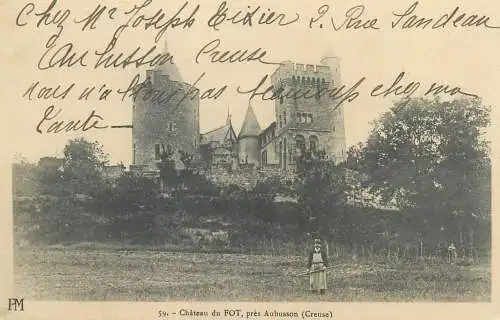 Chez Mr Joseph Tixier 2, Rue Sandeau
Aubusson Creuse
Nous n'allons pas beaucoup chez ma
Tante.
59. - Château du FOT, près Aubusson (Creuse)
PM